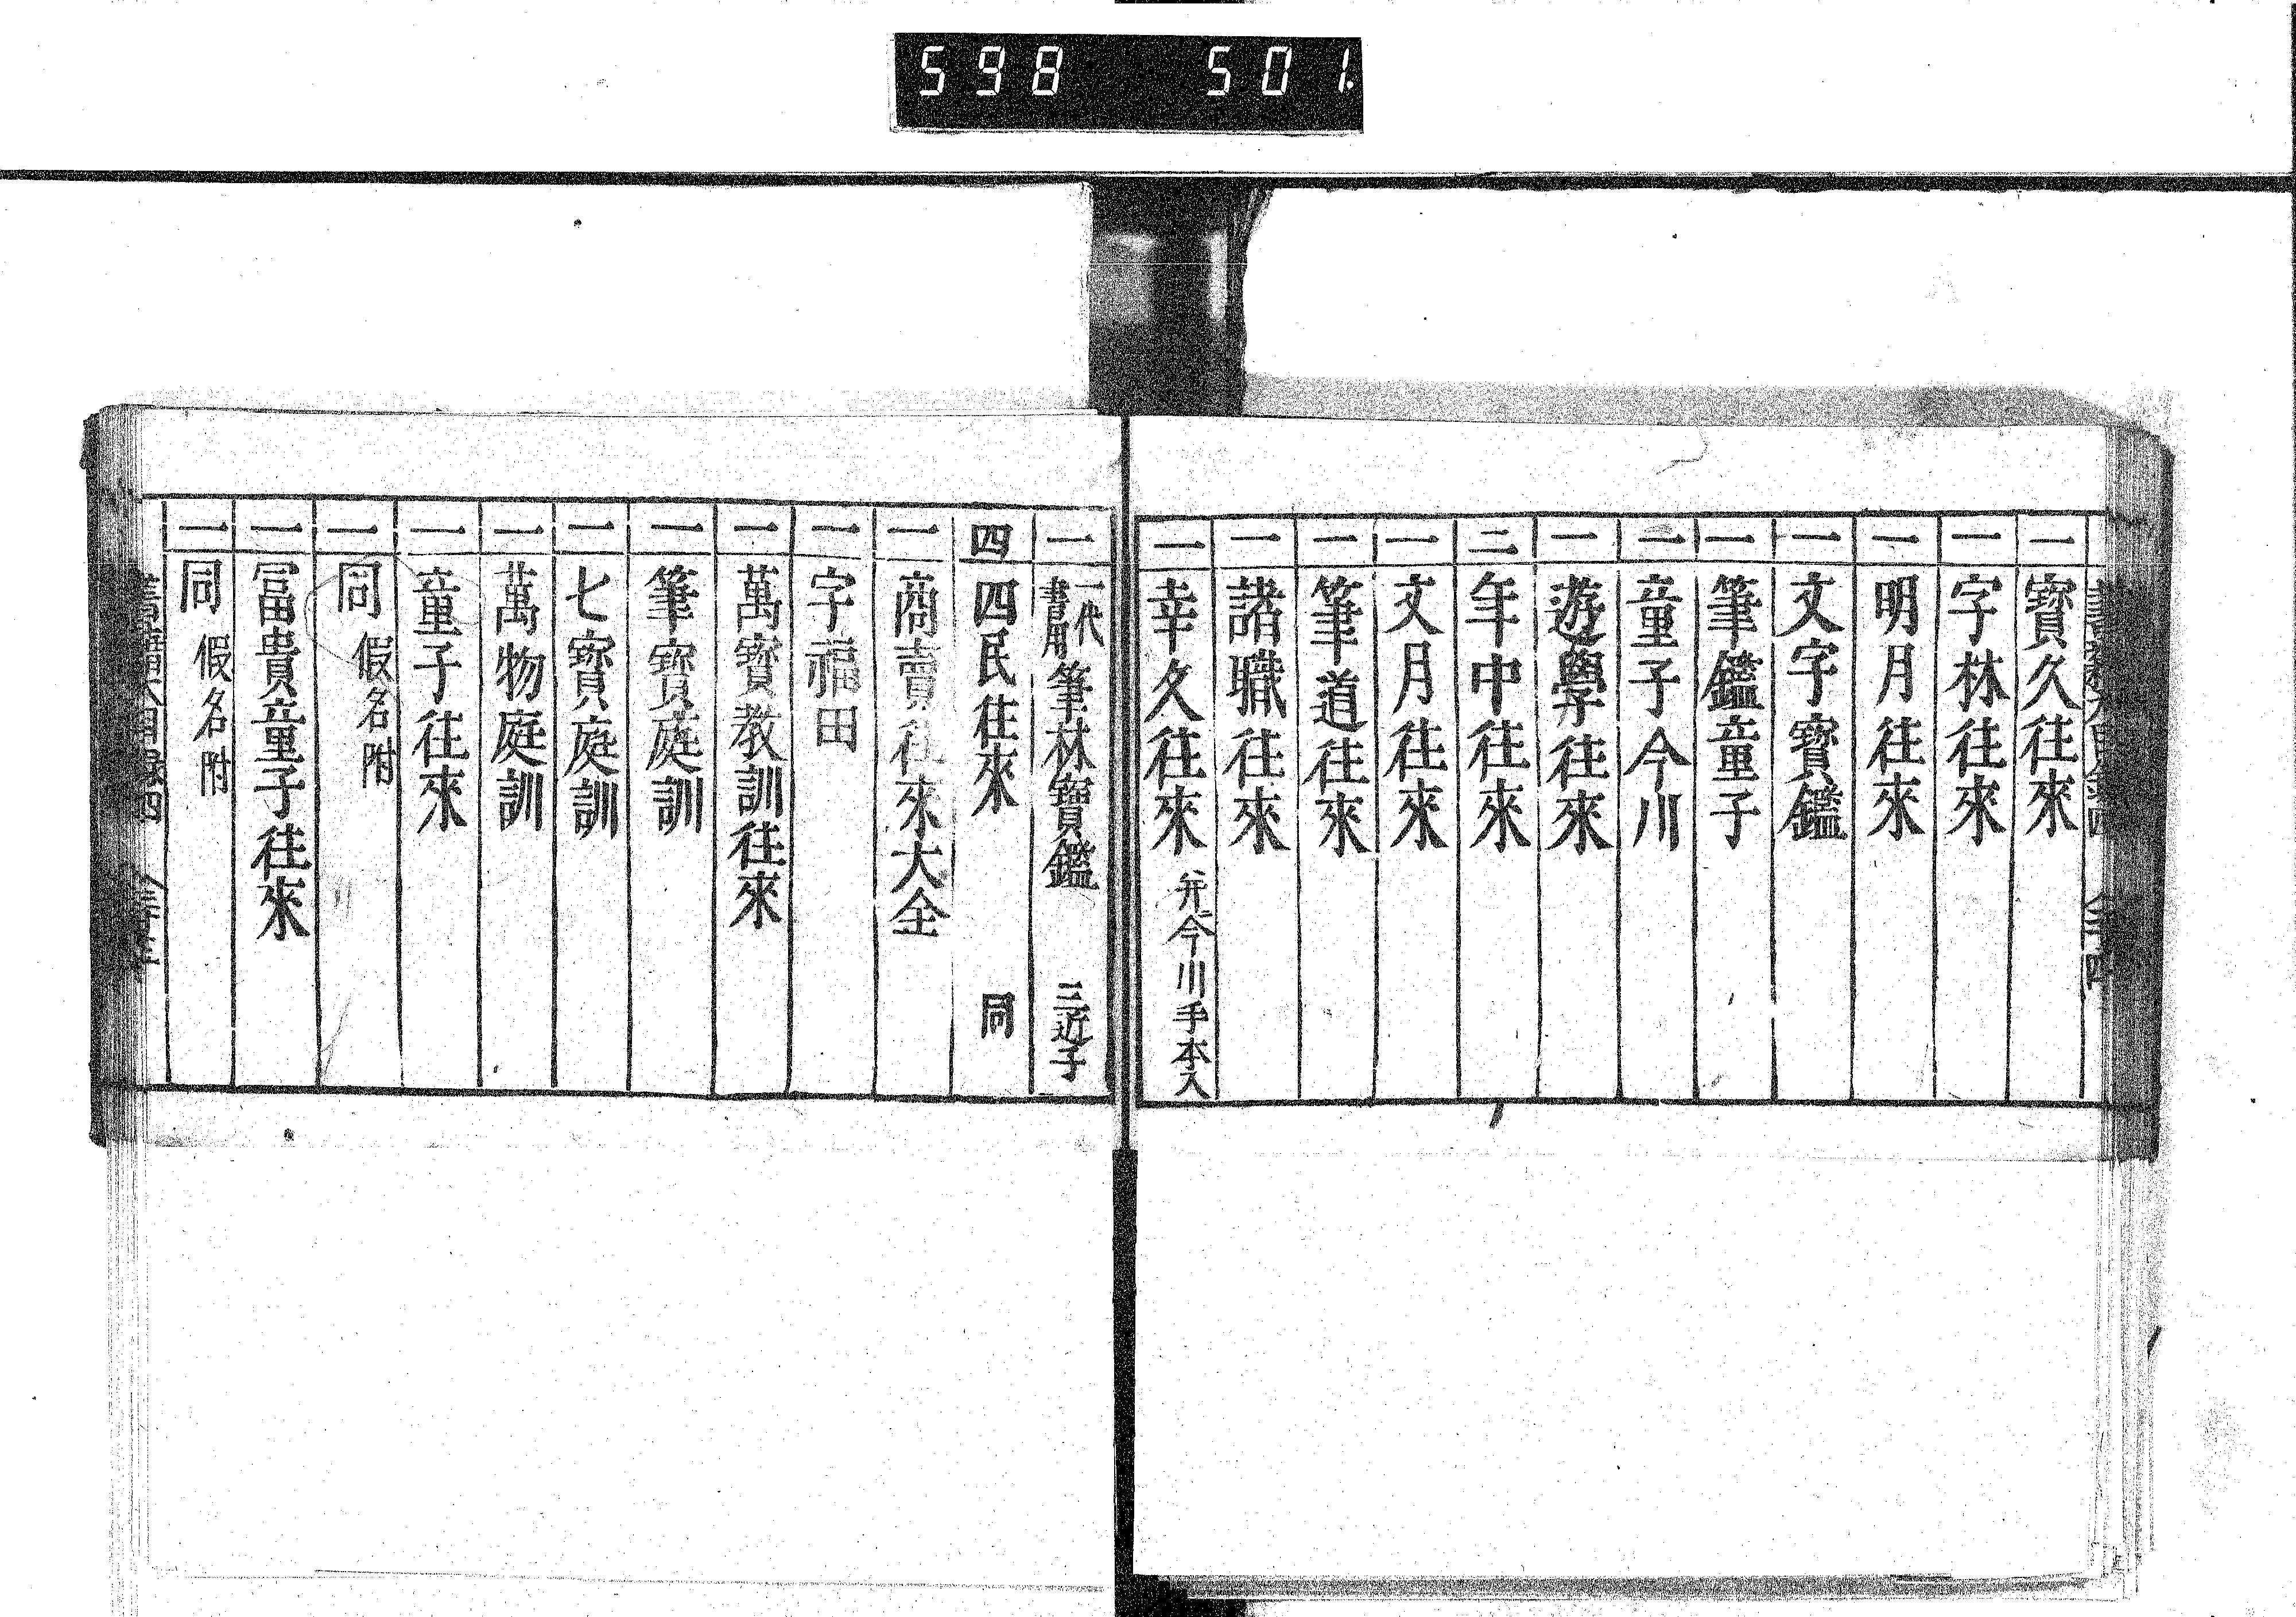 598 501
一 寳久往來
一 字林往來
一 明月往來
一 文字寳鑑
一 筆鑑童子
一 童子今川
一 遊學往來
二 年中往來
一 文月往來
一 筆道往來
一 諸職往來
一 幸久往來 并今川手本入
一 一代書用筆林寶鑑 三近子
四 四民往來 同
一 商賣往來大全
一 字福田
一 萬寳教訓往來
一 筆寳庭訓
一 七寳庭訓
一 萬物庭訓
一 童子往來
一 同 假名附
一 冨貴童子往來
一 同 假名附